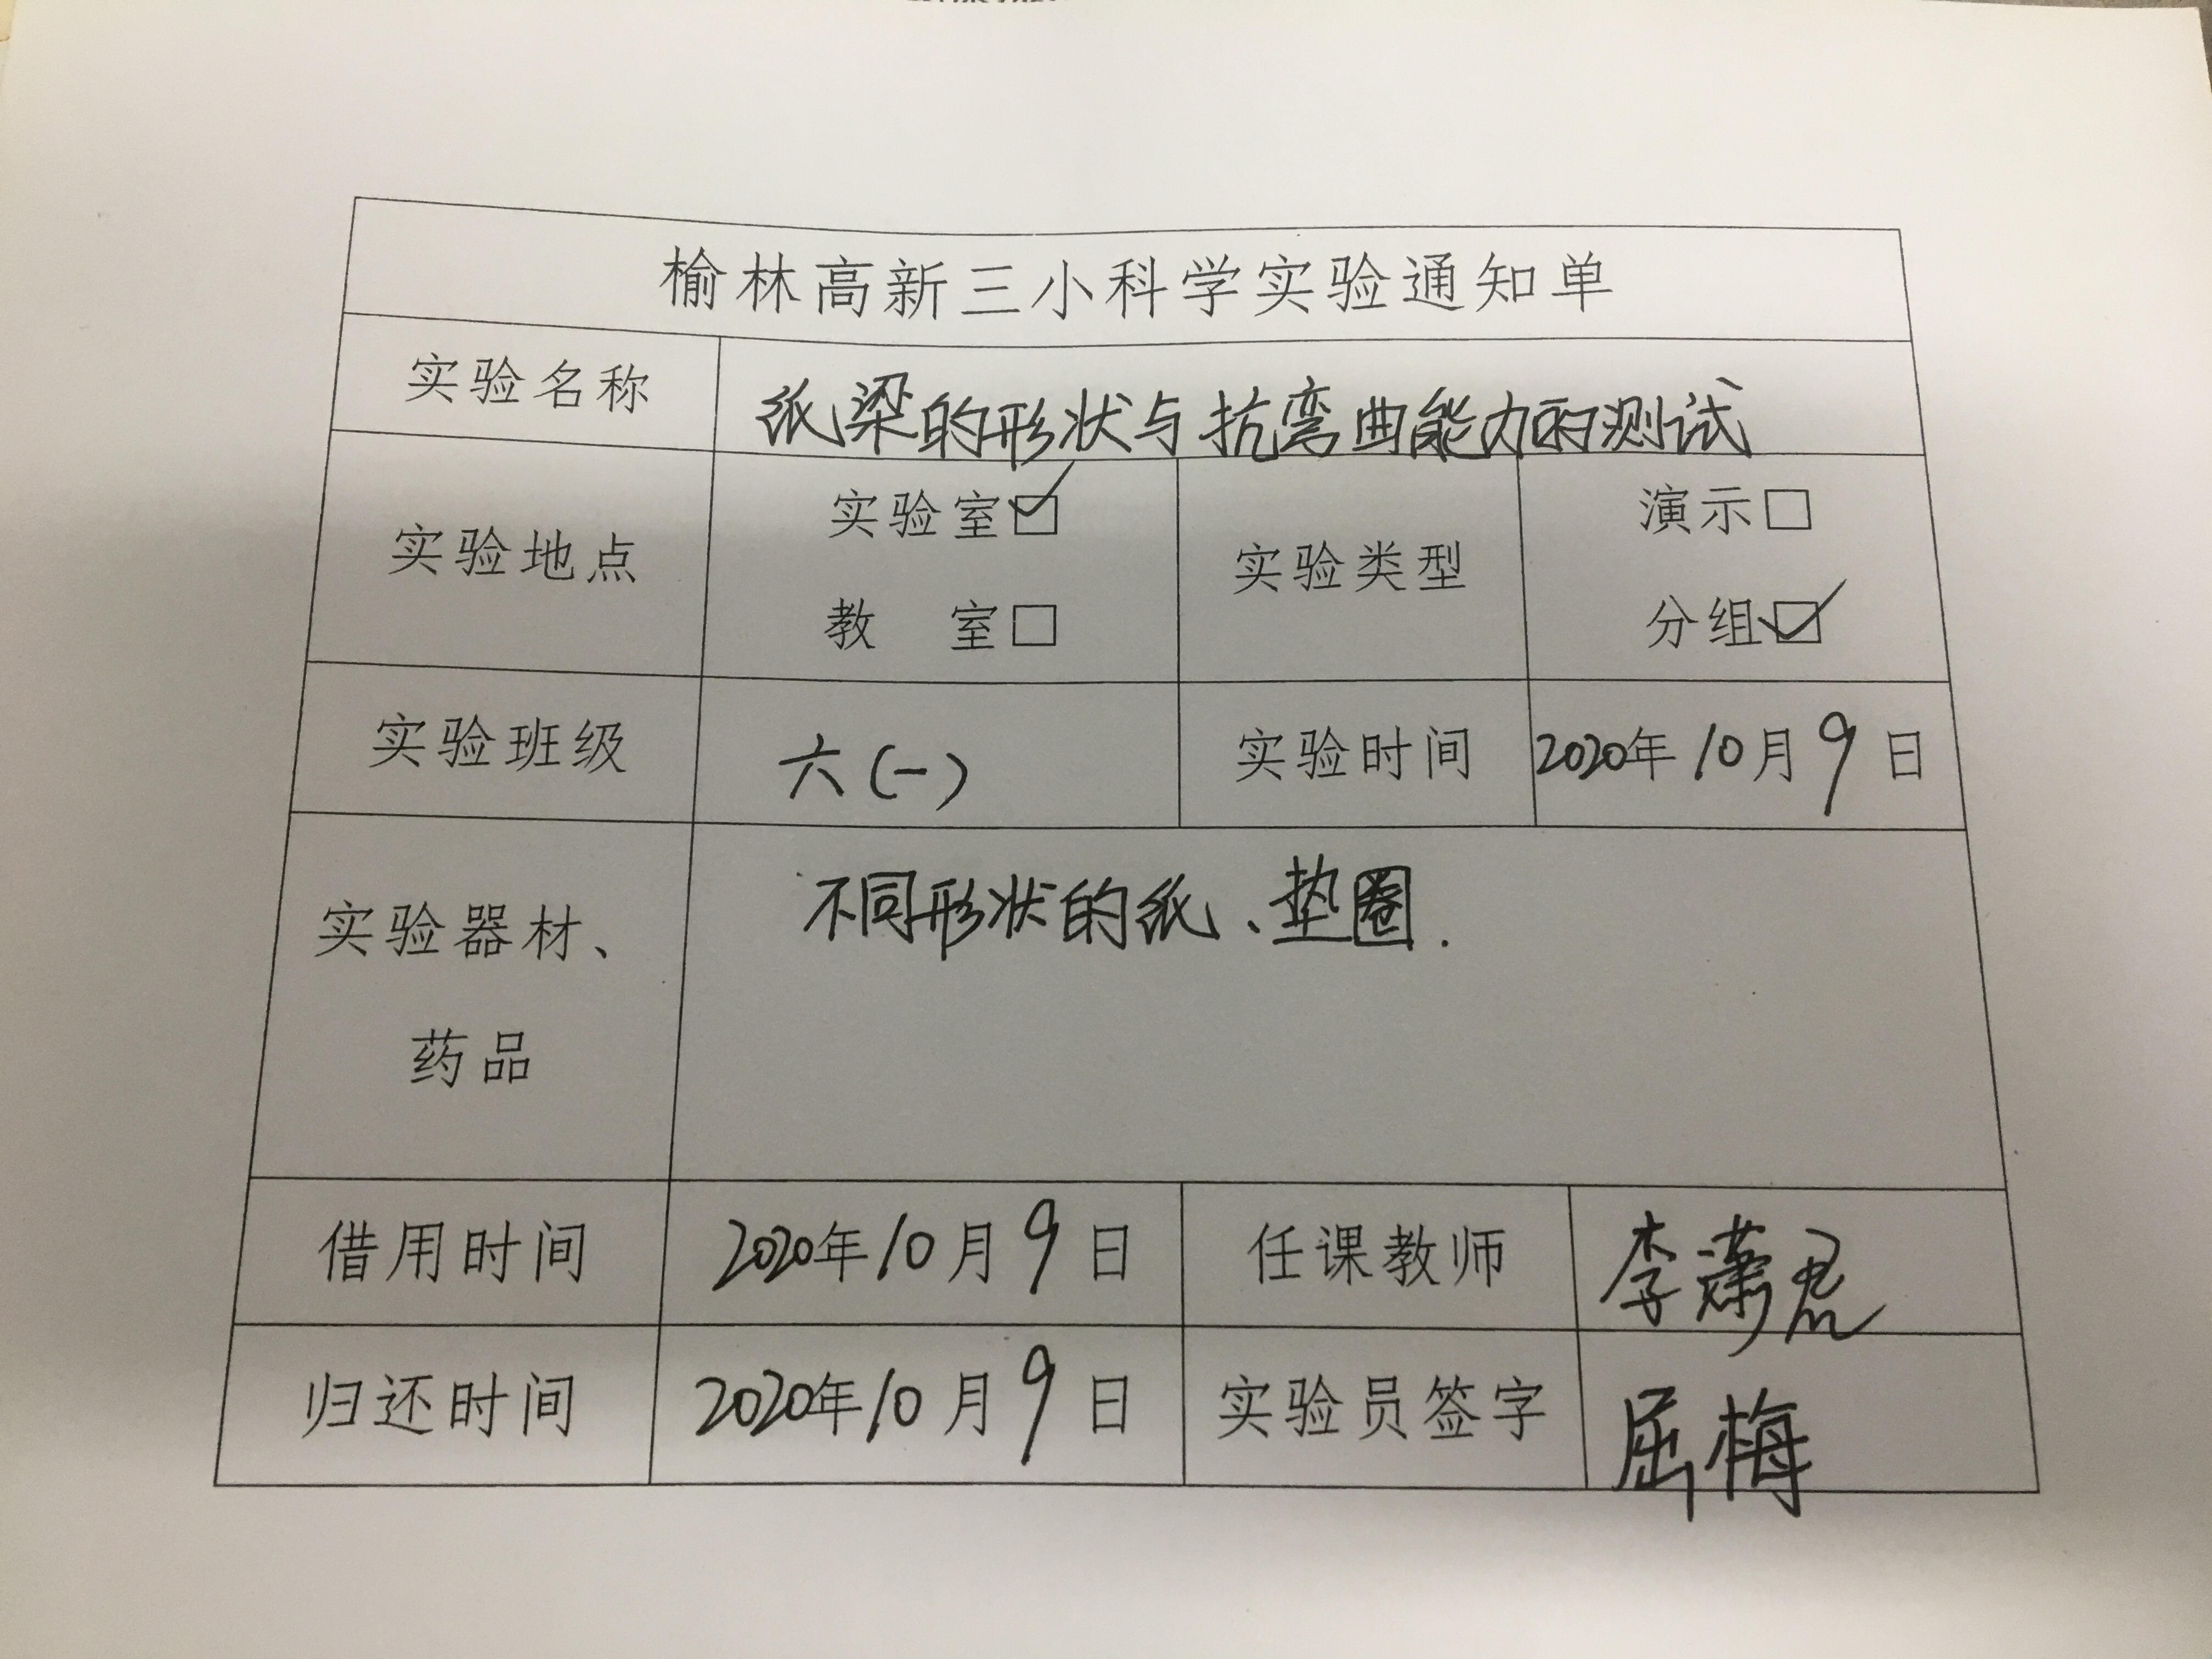 榆林高新三小科学实验通知单
实验名称 纸梁的形状与抗弯曲能力的测试
实验地点 实验室☑ 教 室□ 实验类型 演示□ 分组☑
实验班级 六(一) 实验时间 2020年10月9日
实验器材、
药品
不同形状的纸、垫圈.
借用时间 2020年10月9日 任课教师 李潇
归还时间 2020年10月9日 实验员签字 屈梅